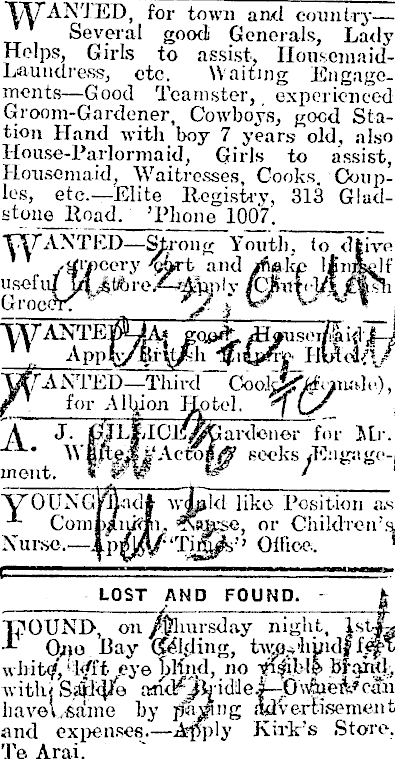 WANTED, for town and country—
Several good Generals, Lady
Helps, Girls to assist, Housemaid-
Laundress, etc. Waiting Engage-
ments—Good Teamster, experienced
Groom-Gardener, Cowboys, good Sta-
tion Hand with boy 7 years old, also
House-Parlormaid, Girls to assist,
Housemaid, Waitresses, Cooks, Coup-
les, etc.—Elite Registry, 313 Glad-
stone Road. 'Phone 1007.
WANTED—Strong Youth, to drive
grocery cart and make himself
useful in store.—Apply Church, Cash
Grocer.
WANTED—A good Housemaid—
Apply British Empire Hotel.
WANTED—Third Cook (female),
for Albion Hotel.
A. J. GILLICE, Gardener for Mr.
White, "Acton," seeks Engage-
ment.
YOUNG Lady would like Position as
Companion, Nurse, or Children's
Nurse.—Apply "Times" Office.
LOST AND FOUND.
FOUND, on Thursday night, 1st—
One Bay Gelding, two hind feet
white, left eye blind, no visible brand,
with Saddle and Bridle.—Owner can
have same by paying advertisement
and expenses.—Apply Kirk's Store,
Te Arai.